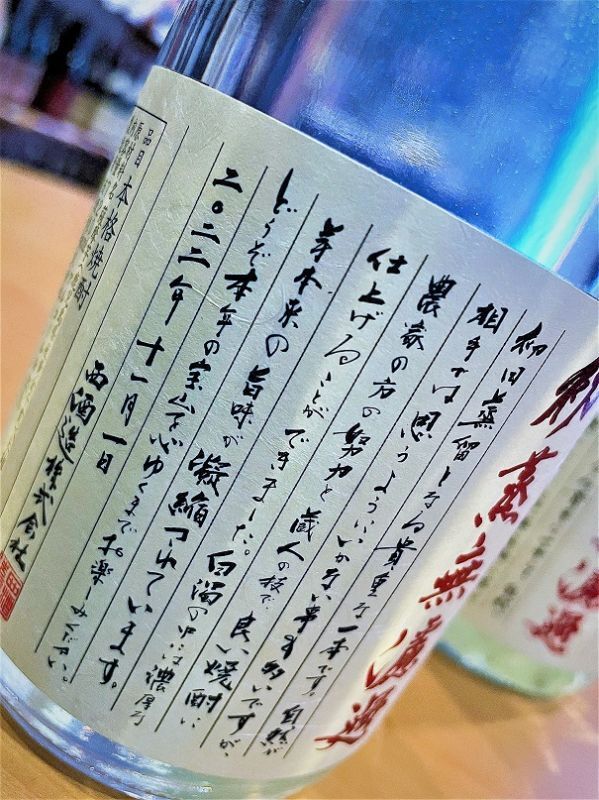 蒸無濾過
初日蒸留となる貴重な一本です。自然が
相手では思うようにいかない事も多いですが、
農家の方の努力と蔵人の技で、良い焼酎に
仕上げることができました。白濁の中には濃厚な
芋本来の旨味が凝縮されています。
どうぞ本年の宝山を心ゆくまでお楽しみください。
二〇二二年十一月一日
西酒造株式会社
品目 本格焼酎